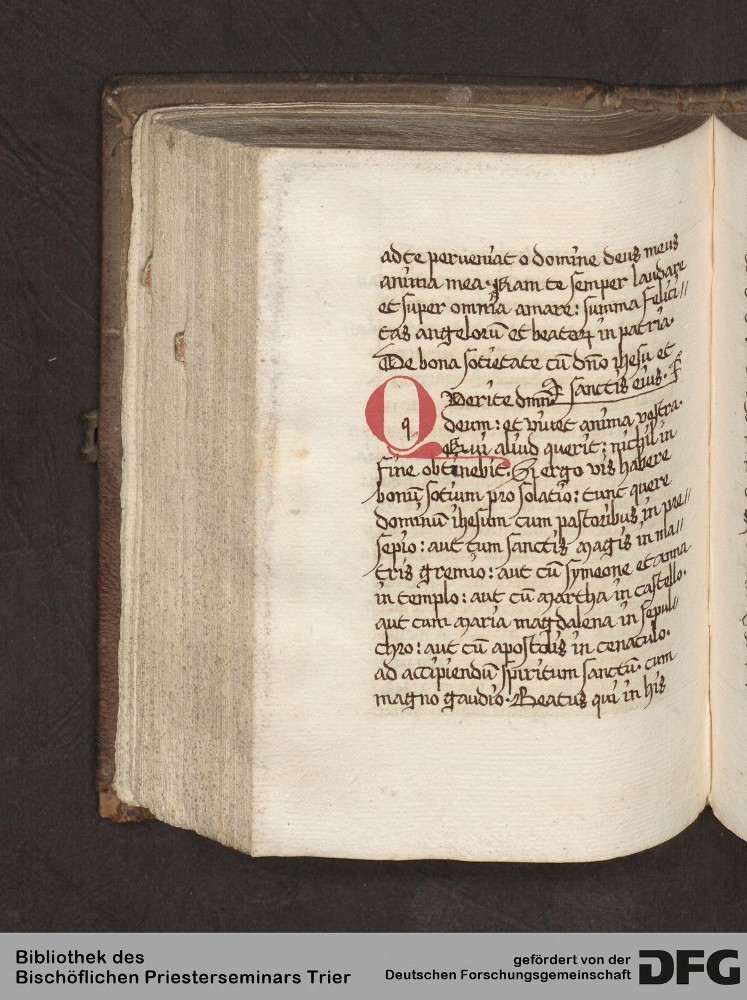 ad te perveniat o domine deus meus
anima mea. Nam te semper laudare
et super omnia amare: summa felici//
tas angelorū et beatoꝝ in patria.
De bona societate cū dn̄o ihesu et
sanctis eius.
Querite dmn̄
deum: et vivet anima vestra.
Qui aliud querit: nichil in
fine obtinebit. Si ergo vis habere
bonū sotium pro solatio: tunc quere
dominū ihesum cum pastoribus in pre//
sepio: aut cum sanctis magis in ma//
tris gremio: aut cū symeone et anna
in templo: aut cū martha in castello.
aut cum maria magdalena in sepul//
chro: aut cū apostolis in cenaculo.
ad accipiendū spiritum sanctū. cum
magno gaudio. Beatus qui in his
Bibliothek des
Bischöflichen Priesterseminars Trier
gefördert von der
Deutschen Forschungsgemeinschaft
DFG